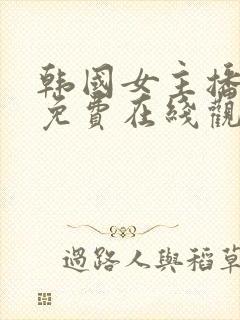 韩國女主播
免費在綫觀
過路人與稻草